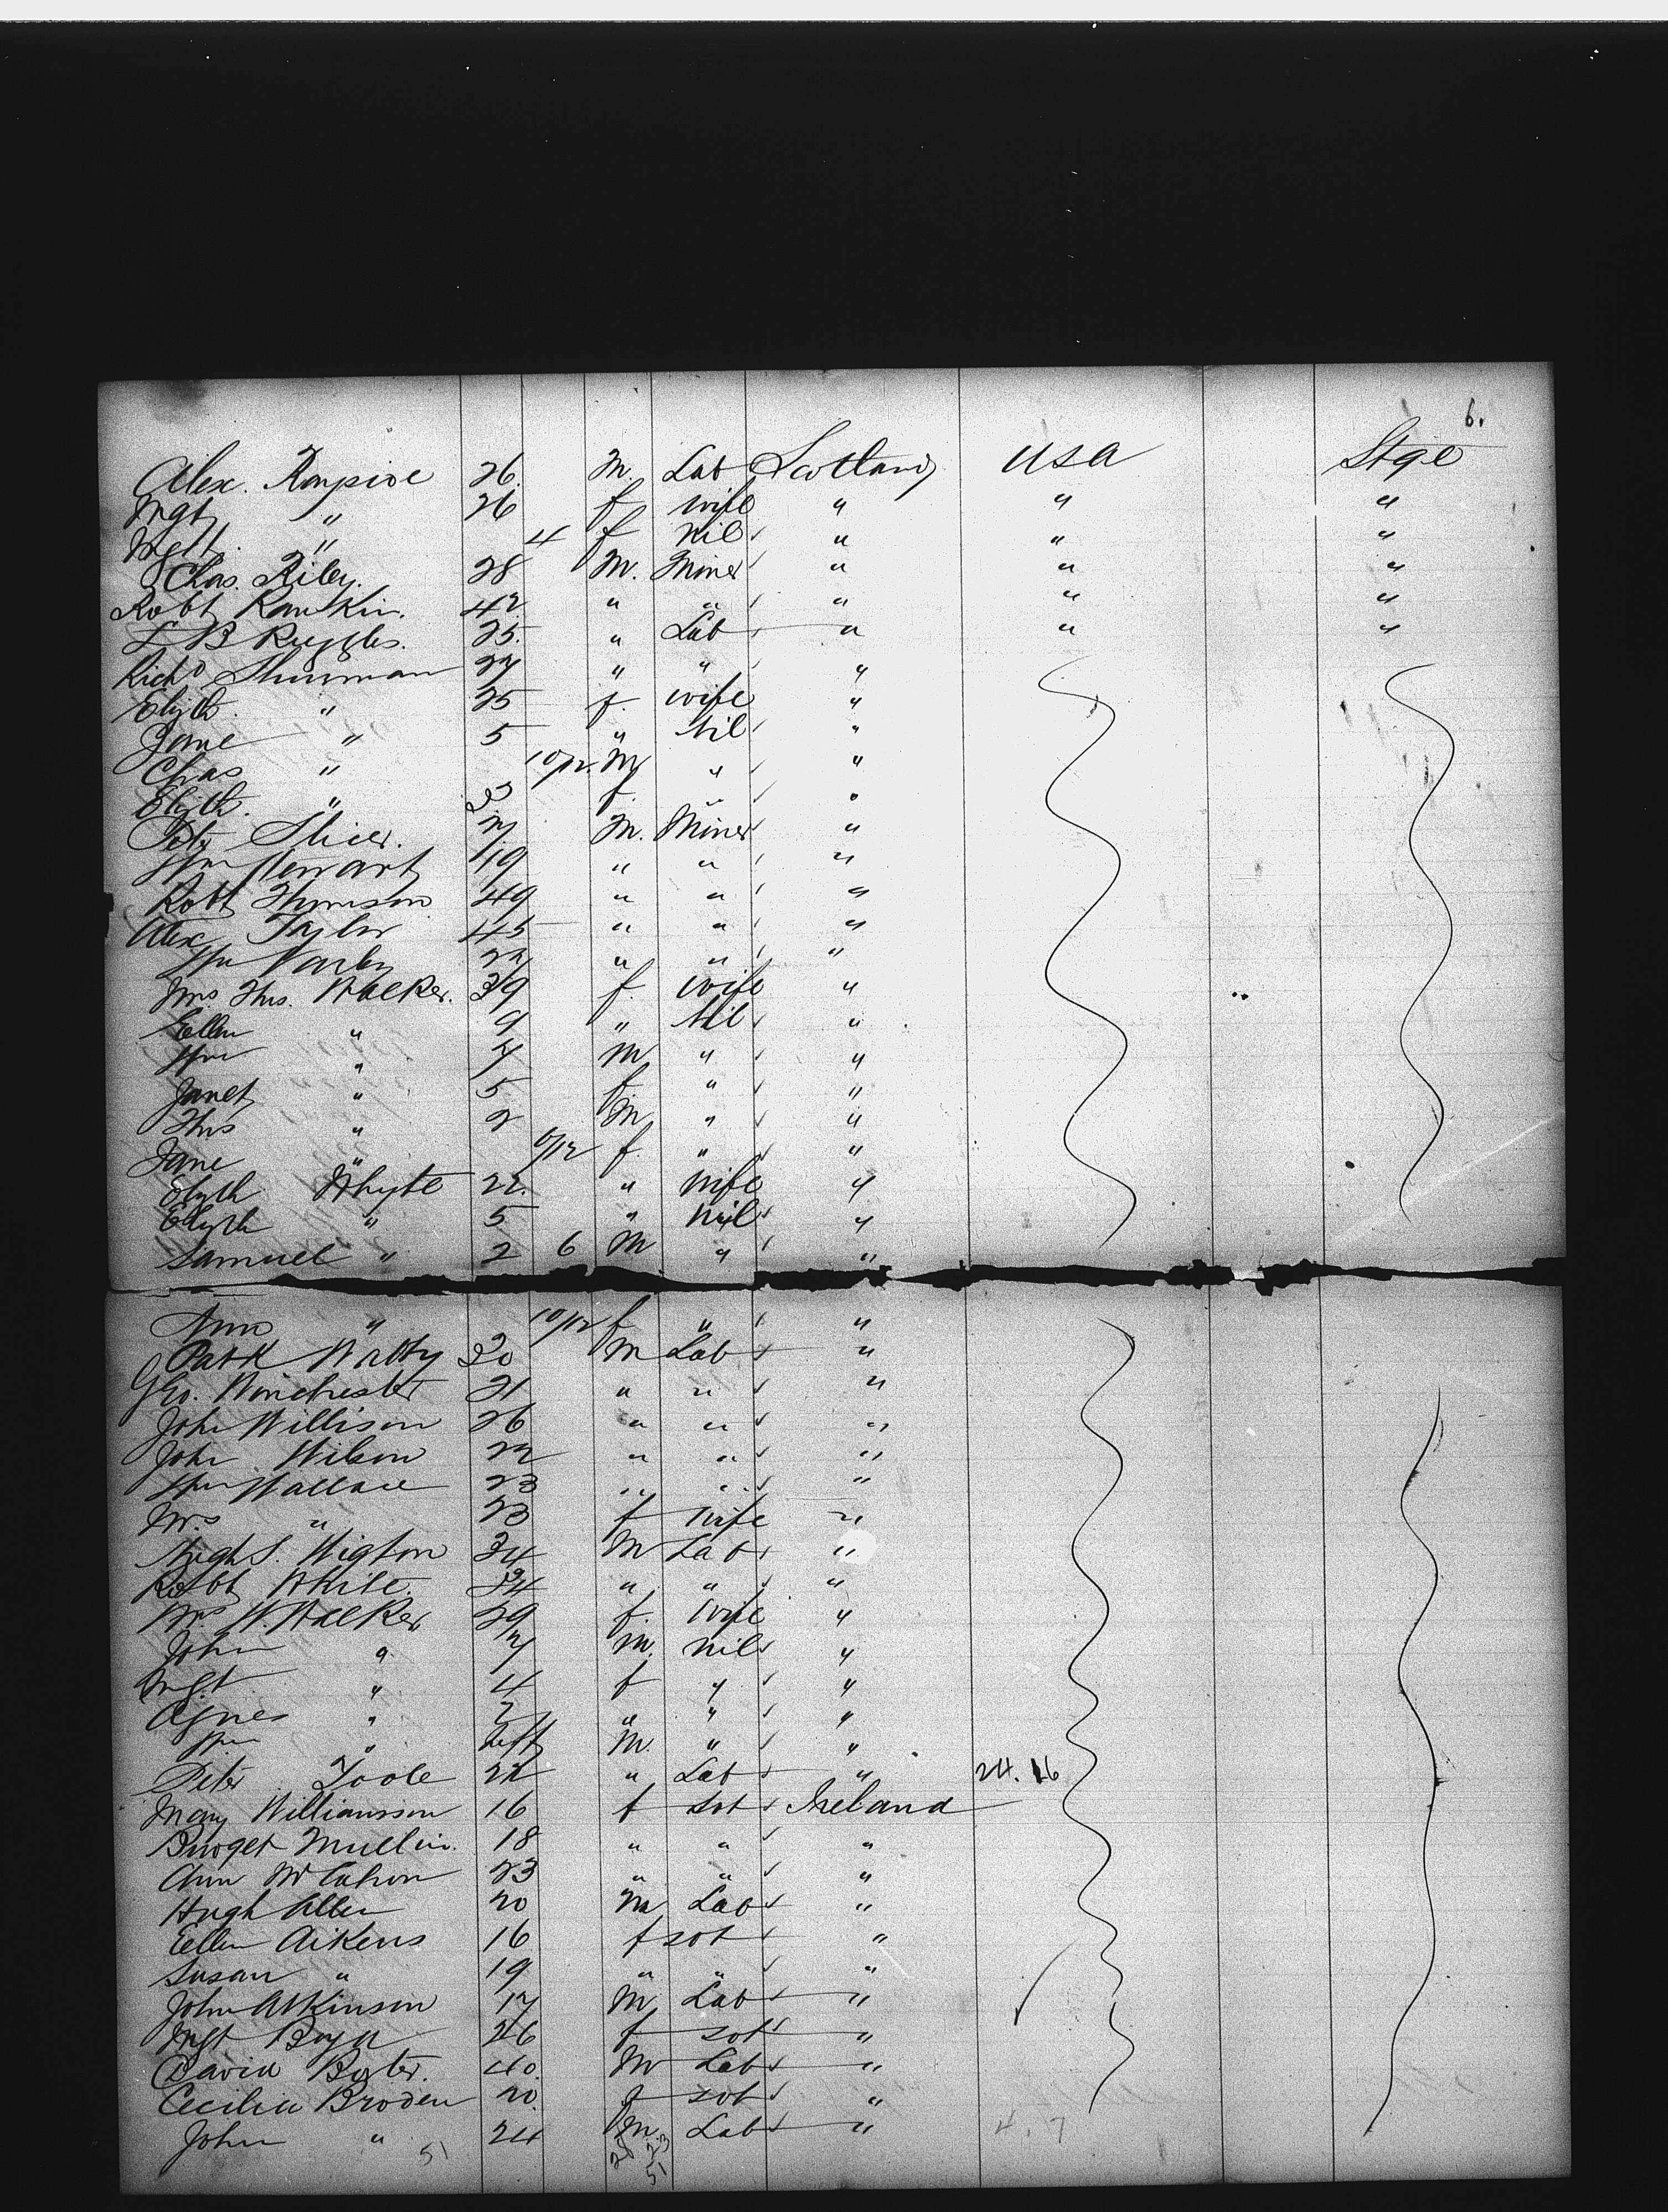 6.
Alex. Rampine 26. M. Lab Scotland USA Stge
Mgt " 26 f wife " " "
Mgtt. " 4 f Nil " " "
Chas. Riley. 28 M. Miner " " "
Robt Rankin. 42 " " " " "
L B Ruggles. 25. " Lab " " "
Richd Shurman 27 " " "
Elizth. " 25 f. wife "
Jane " 5 " Nil "
Chas " 10/12. M " "
Elizth. " 3 f. " "
Peter Slicer. 27 M. Miner "
Wm Stewart 19 " " "
Robt Thomson 49 " " "
Alex Taylor 45 " " "
Wm 22 " " "
Mrs Thos. Walker. 39 f. wife "
Ellen " 9 " Nil "
Wm " 7 M " "
Janet " 5 f " "
Thos " 2 M " "
Jane " /12 f. " "
Elizth Whyte 22. " wife "
Elizth " 5 " Nil "
Samuel " 2 6 M " "
Ann " 10/12 f " "
Patk Watty 30 M Lab "
Geo. Winchester 21 " " "
John Willison 26 " " "
John Wilson 22 " " "
Wm Wallace 23 " " "
Mrs " 23 f wife "
Hugh S. Wigton 34 M Lab "
Robt White. 34 " " "
Mrs W. Walker 29 f. wife "
John " 7 M. Nil "
Mgt " 4 f " "
Agnes " 2 " " "
Wm " Inft M. " "
Peter Toole 22 " Lab " 24. 16
Mary Williamson 16 f sot Ireland
Bridget Mullin. 18 " " "
Ann McCahon 23 " " "
Hugh Allen 20 M Lab "
Ellen Aikens 16 f sot "
Susan " 19 " " "
John Atkinson 17 M Lab "
Mgt Boyd 26 f sot "
David Baxter. 40. M Lab "
Cecilia Broden 20. f sot "
John " 24 M. Lab " 4. 7
51 28 23
51